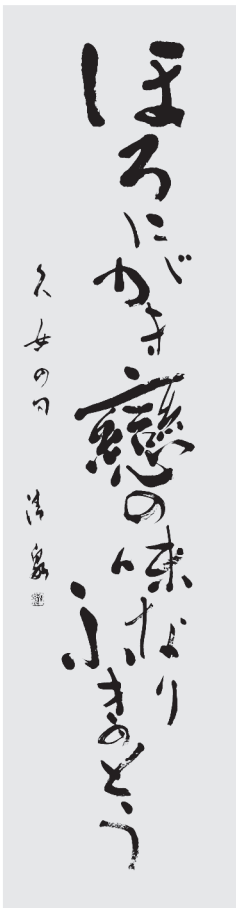 ほろにがき戀の味なりふきのとう
久女の句 清泉